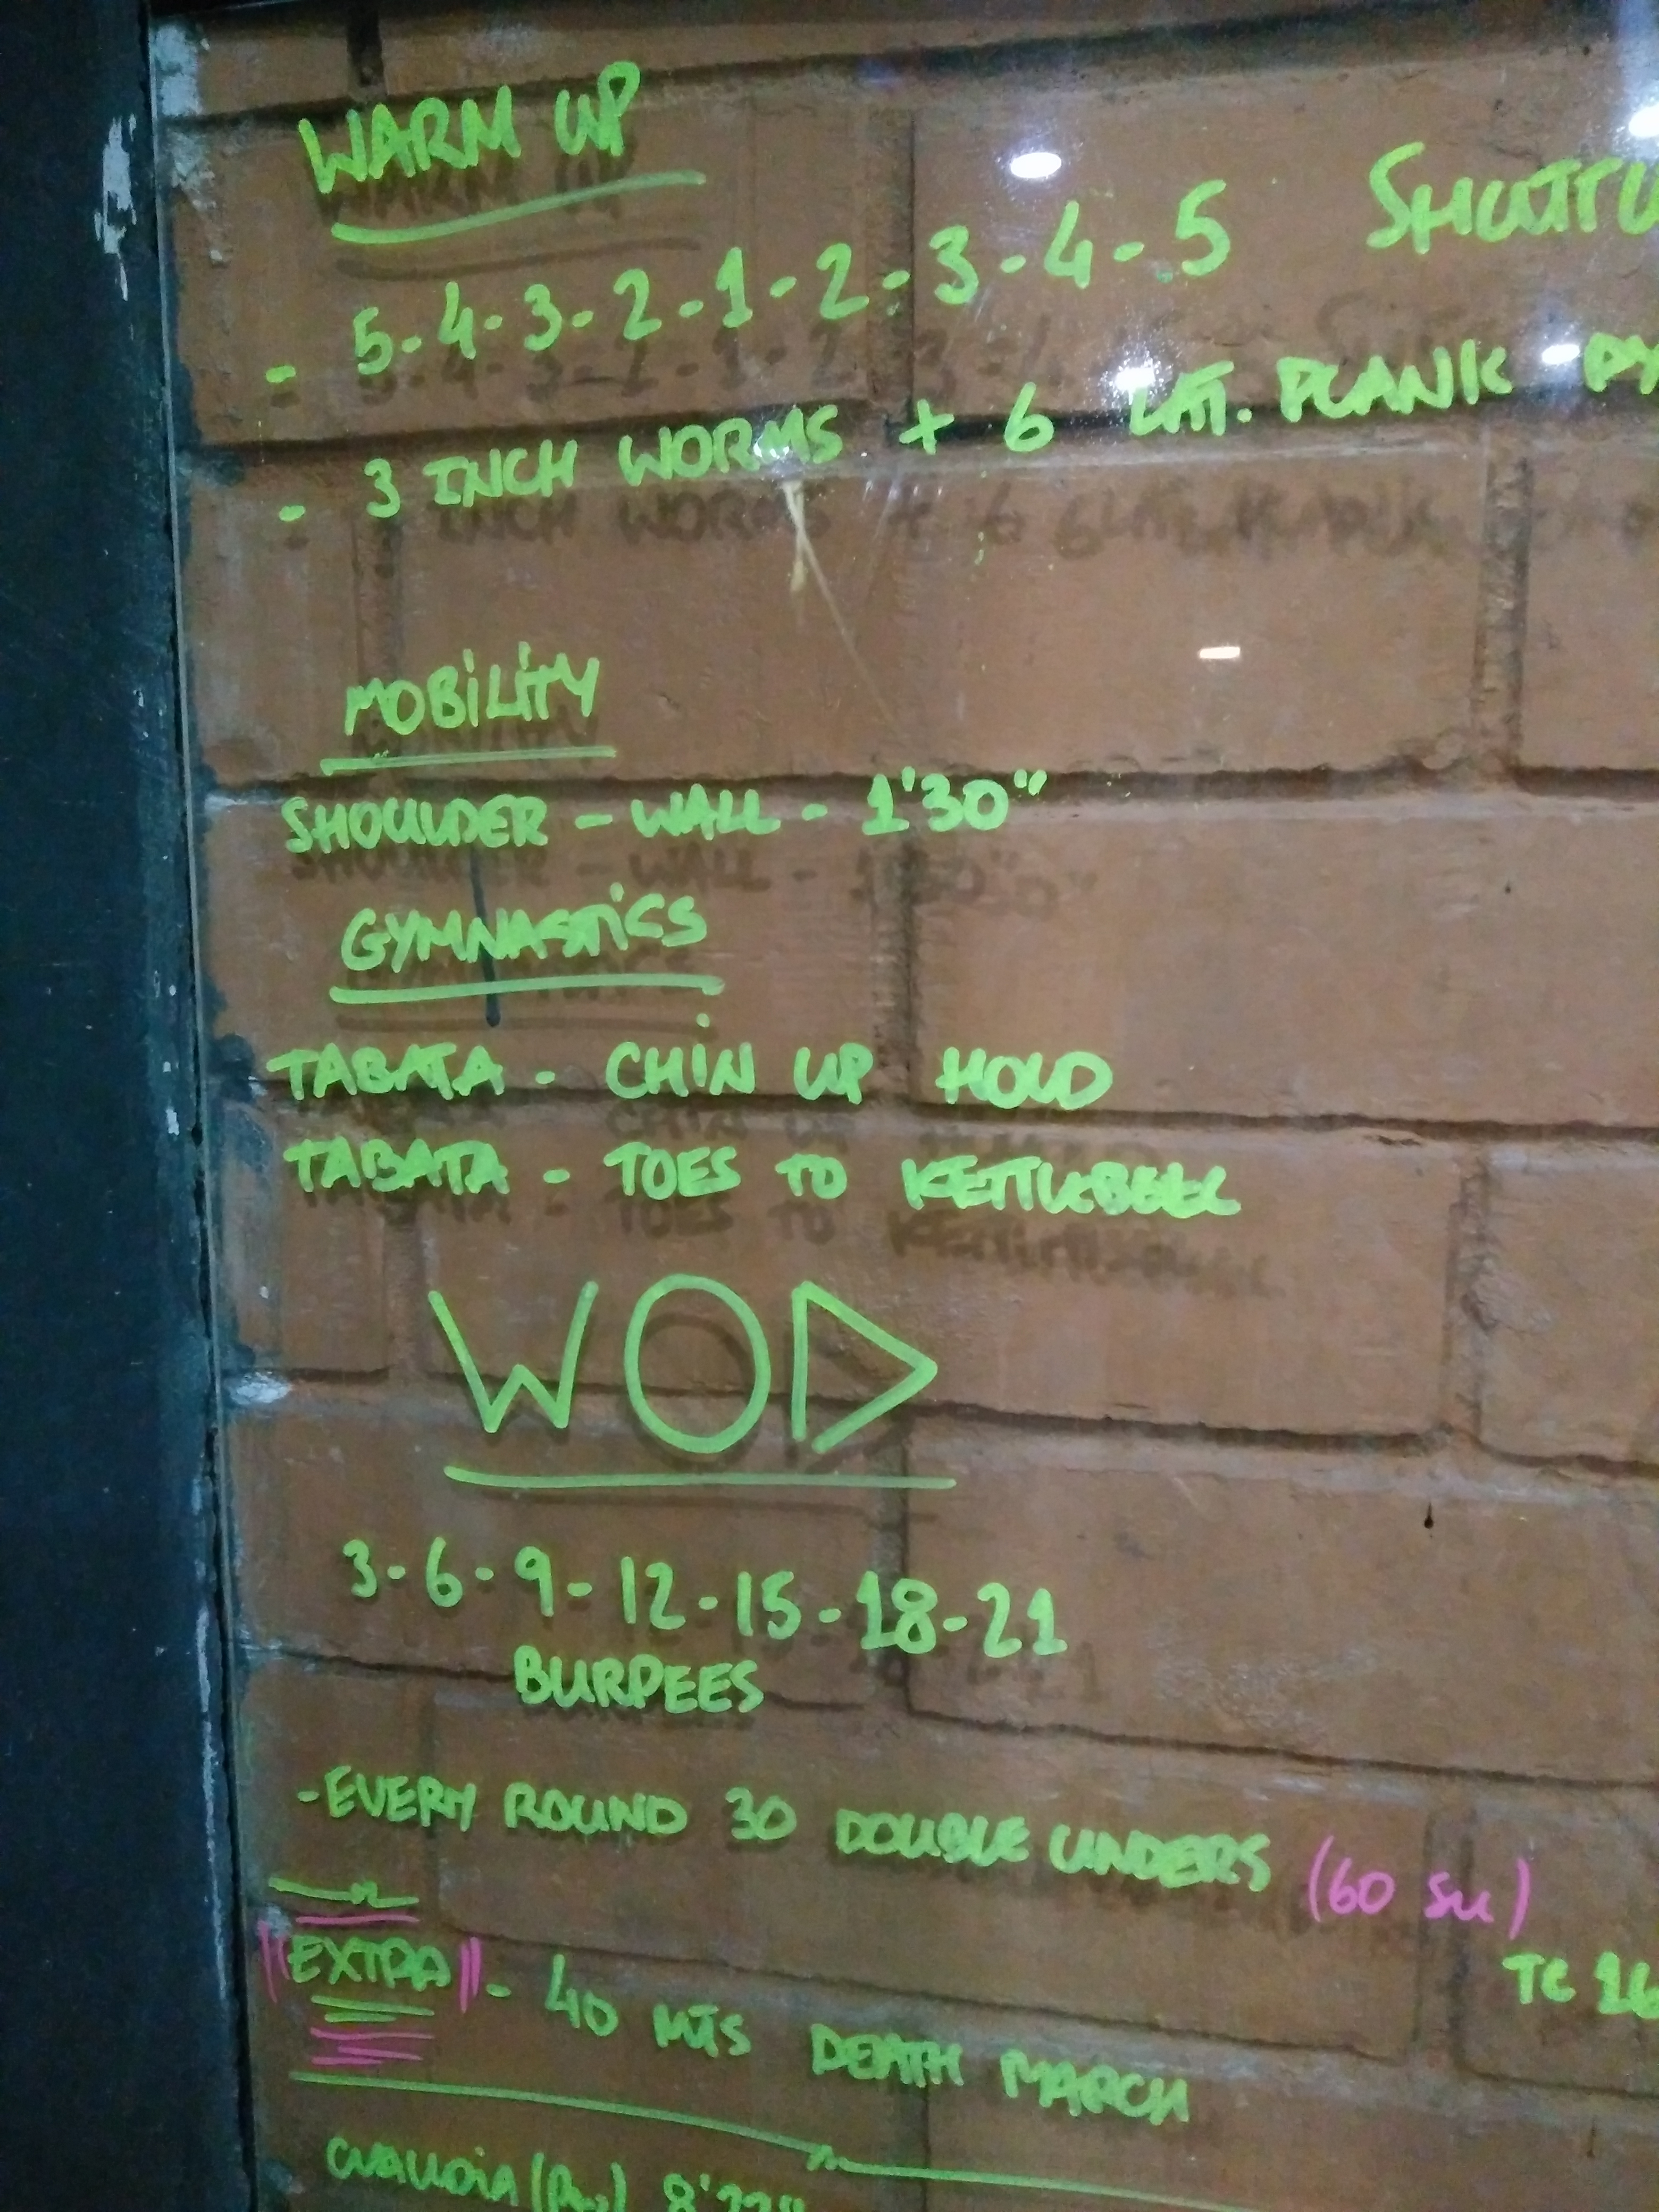 WARM UP
- 5-4-3-2-1-2-3-4-5 SHUTTL
- 3 INCH WORMS + 6 LAT. PLANK
MOBILITY
SHOULDER - WALL - 1'30"
GYMNASTICS
TABATA - CHIN UP HOLD
TABATA - TOES TO KETTLEBELL
WOD
3-6-9-12-15-18-21
BURPEES
-EVERY ROUND 30 DOUBLE UNDERS (60 SU)
TC 16
"EXTRA" - 40 MTS DEATH MARCH
CLAUDIA (Rx) 8'22"